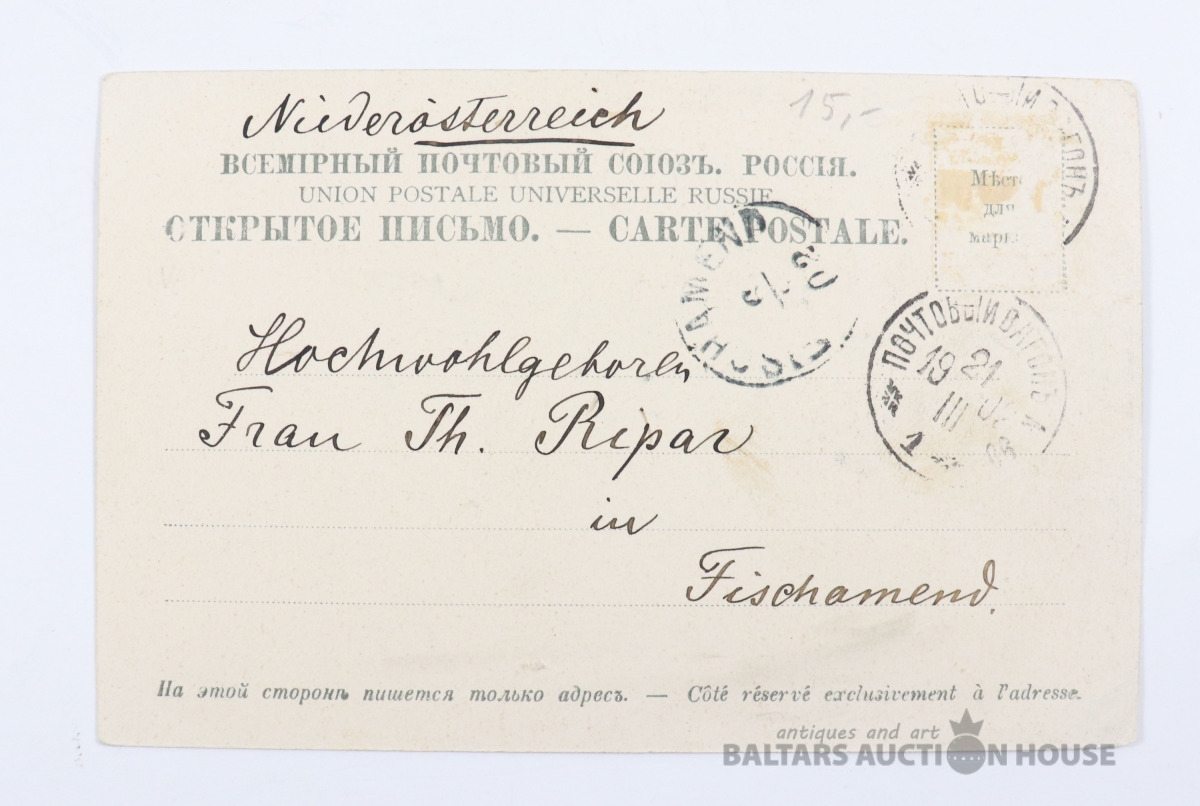 Niederösterreich
15,-
ВСЕМІРНЫЙ ПОЧТОВЫЙ СОЮЗЪ. РОССІЯ.
UNION POSTALE UNIVERSELLE RUSSIE
ОТКРЫТОЕ ПИСЬМО. — CARTE POSTALE.
Мѣсто
для
марки
ПОЧТОВЫЙ ВАГОНЪ
19 21
III
Hochwohlgeboren
Frau Th. Ripar
in
Fischamend.
На этой сторонѣ пишется только адресъ. — Côté réservé exclusivement à l'adresse.
antiques and art
BALTARS AUCTION HOUSE